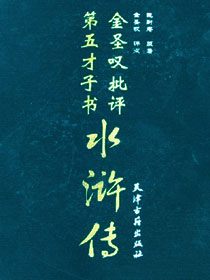 施耐庵 原著
金圣叹
金圣叹批评
第五才子书
水浒传
天津古籍出版社